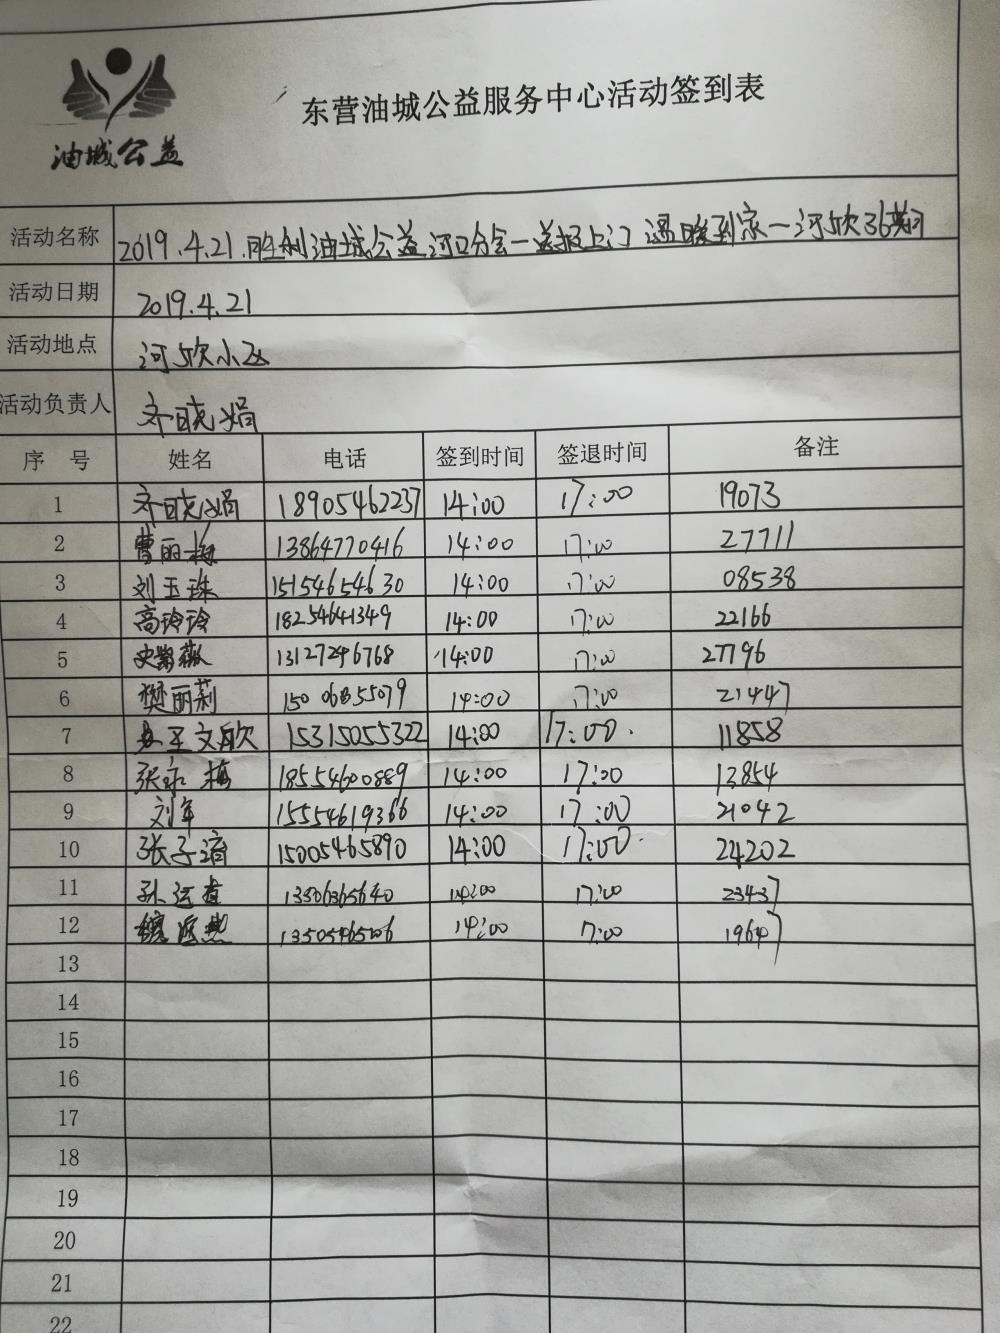 油城公益
东营油城公益服务中心活动签到表
活动名称 2019.4.21.胜利油城公益河口分会一益报上门 温暖到家一河欣36期
活动日期 2019.4.21
活动地点 河欣小区
活动负责人 晓娟
序 号 姓名 电话 签到时间 签退时间 备注
1 晓娟 18905462237 14:00 17:00 19073
2 曹丽梅 13864770416 14:00 17:00 27711
3 刘玉珠 15154654630 14:00 17:00 08538
4 高玲玲 18254641349 14:00 17:00 22166
5 史 薇 13127296768 14:00 17:00 27796
6 樊丽莉 15006855079 14:00 17:00 21447
7 王文欣 15315055322 14:00 17:00 11858
8 张永梅 18554600889 14:00 17:00 13854
9 刘军 15554619366 14:00 17:00 21042
10 张子涵 15005465890 14:00 17:00 24202
11 孙运 13506365640 14:00 17:00 23437
12 14:00 17:00 19647
13
14
15
16
17
18
19
20
21
22